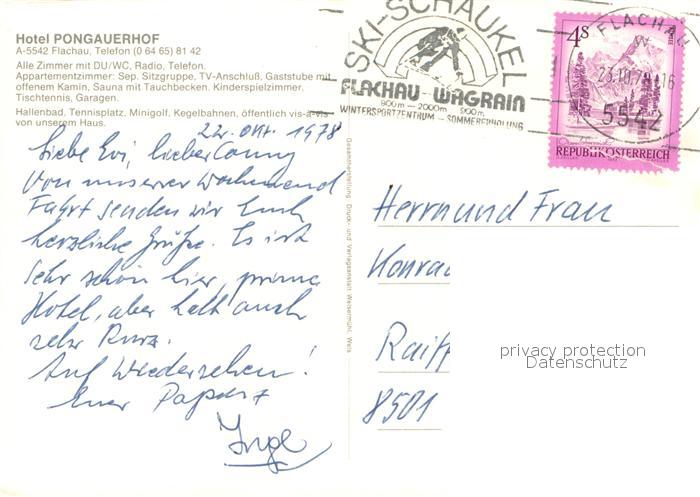 Hotel PONGAUERHOF
A-5542 Flachau, Telefon (0 64 65) 81 42
Alle Zimmer mit DU/WC, Radio, Telefon.
Appartementzimmer: Sep. Sitzgruppe, TV-Anschluß, Gaststube mit
offenem Kamin, Sauna mit Tauchbecken. Kinderspielzimmer.
Tischtennis, Garagen.
Hallenbad, Tennisplatz, Minigolf, Kegelbahnen, öffentlich vis-a-vis
von unserem Haus.
22. Okt. 1978
Liebe Evi, lieber Conny
Von unserer Wochenend
Fahrt senden wir Euch
herzliche Grüße. Es ist
sehr schön hier, prima
Hotel, aber halt auch
sehr kurz.
Auf Wiedersehen!
Euer
Inge
Gesamtherstellung: Druck- und Verlagsanstalt Welsermühl, Wels
SKI-SCHAUKEL
FLACHAU-WAGRAIN
900m – 2000m 900m
WINTERSPORTZENTRUM – SOMMERERHOLUNG
4S
REPUBLIK ÖSTERREICH
FLACHAU
23.10.78-16
5542
Herrn und Frau
Konrad
Raiff
8501
privacy protection
Datenschutz